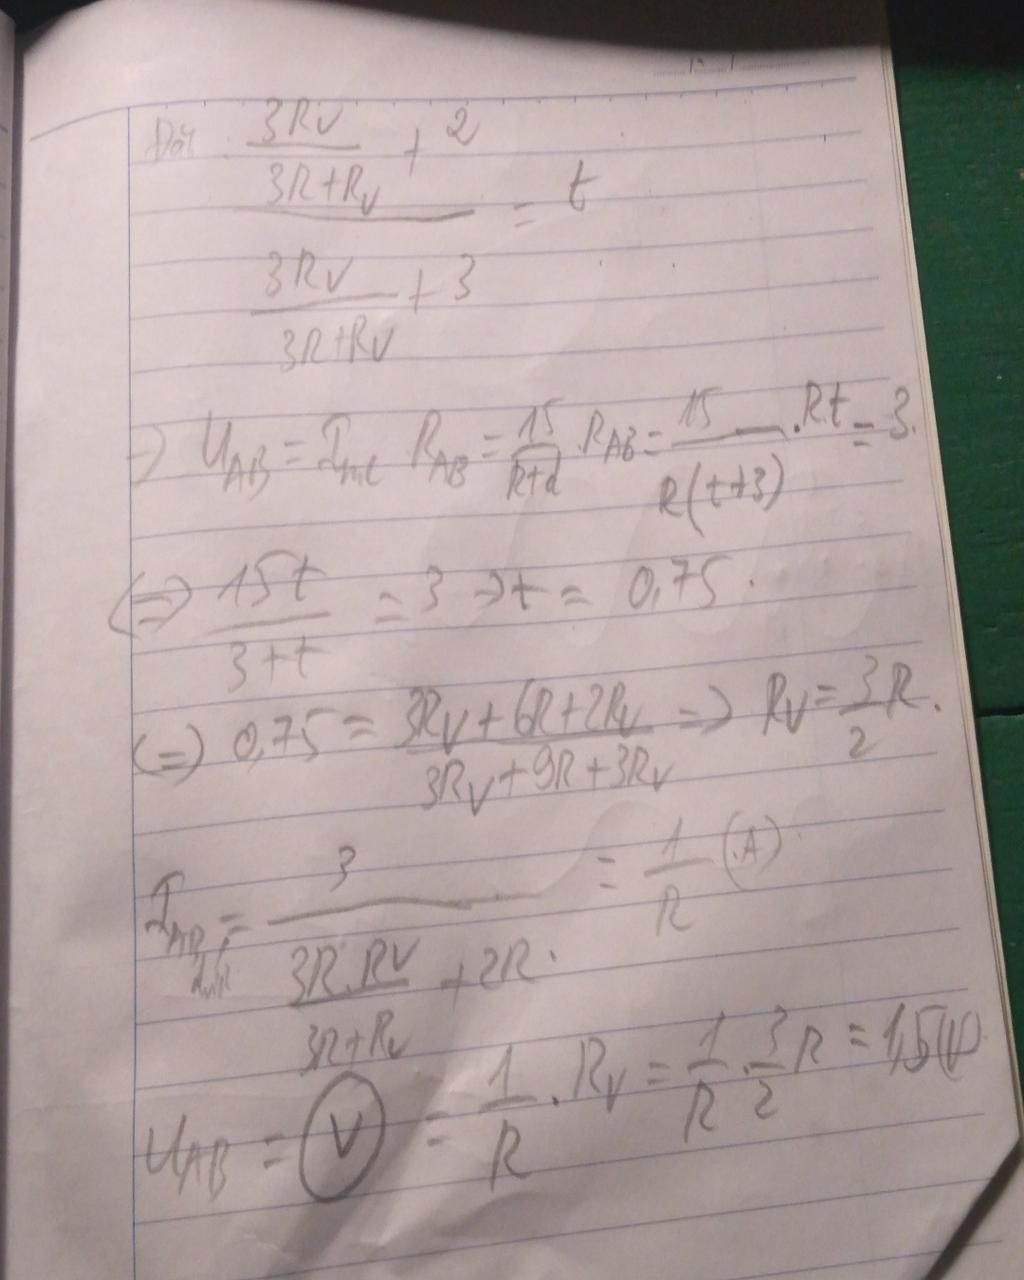 Đặt (3RV/(3R+RV) + 2) / (3RV/(3R+RV) + 3) = t
=> UAB = Imc RAB = 15/(R+d) . RAB = 15/(R(t+3)) . Rt = 3.
<=> 15t/(3+t) = 3 => t = 0,75.
(=) 0,75 = (3RV+6R+2RV)/(3RV+9R+3RV) => RV = 3/2 R.
= 3/(3R.RV/(3R+RV) + 2R) = 1/R (A)
UAB = (V) = 1/R . RV = 1/R . 3/2 R = 1,5 (V)